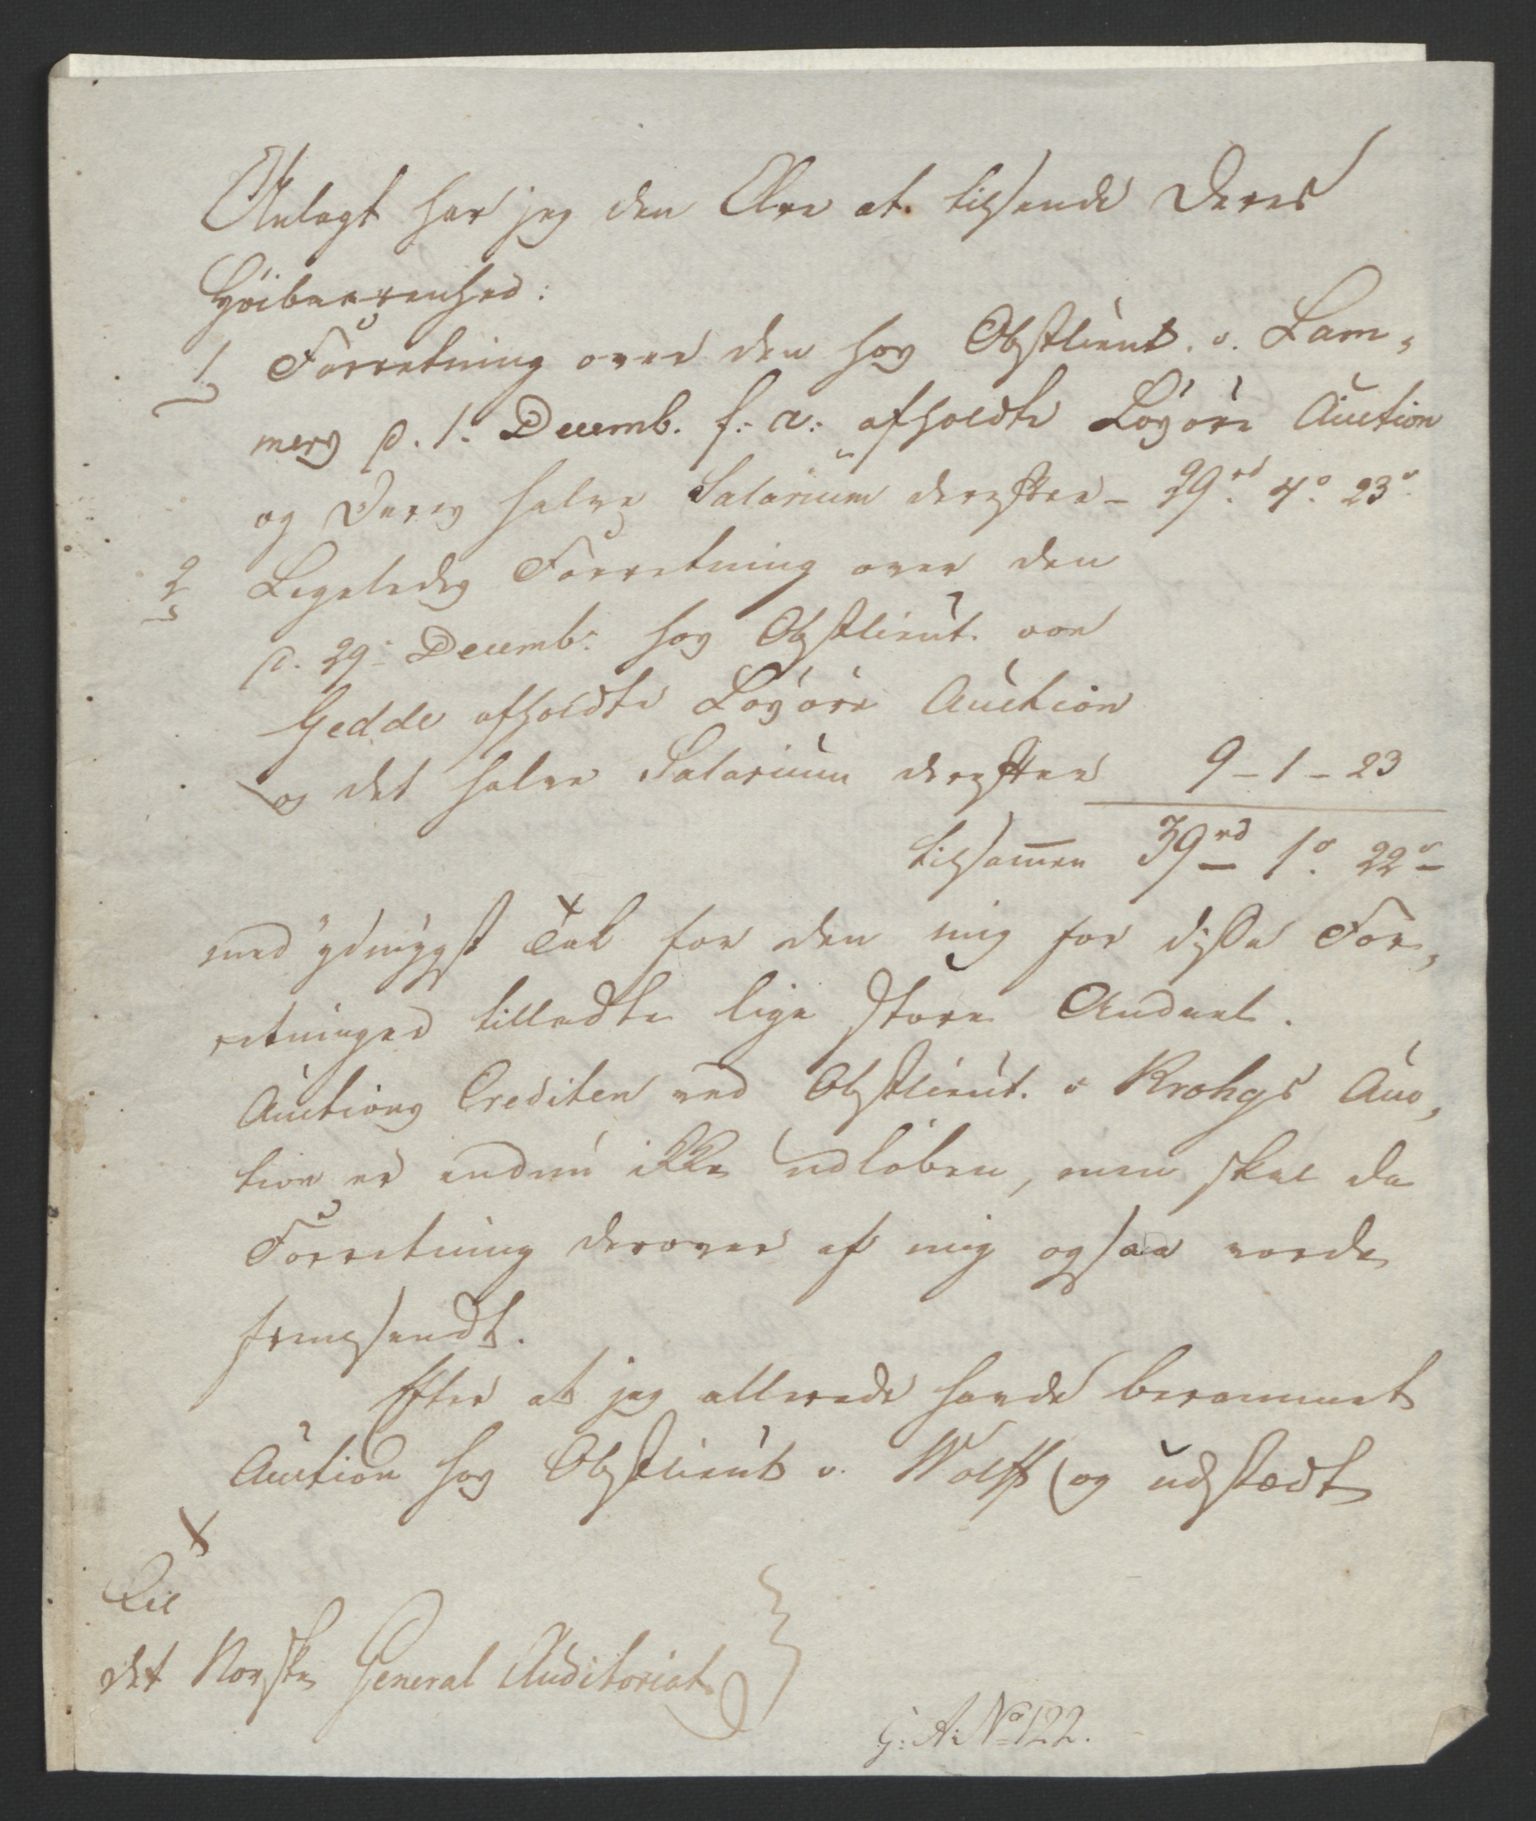 Anlagt har jeg den Ære at tilsende Deres
Høibaarenhed:
1, Forretning over den hos Obstlieut. v. Lam-
mers d. 1. Decemb. f: a: afholdte Løsøre Auction
og Deres halve Salarium derefter - 29rd 4o 23s
2, Ligeledes Forretning over den
d. 29. Decemb. hos Obstlieut. von
Gedde afholdte Løsøre Auction
og det halve Salarium derefter 9 - 1 - 23
tilsammen 39rd 1o 22s
med ydmygst Tak for den mig for disse For-
retninger tilladte lige store Andeel.
Auctions Crediten ved Obstlieut. v Krohgs Auc-
tion er endnu ikke udløben, men skal da
Forretning derover af mig ogsaa vorde
fremsendt.
Efter at jeg allerede havde berammet
Auction hos Obstlieut v. Wolff (og udstædt
Til
det Norske General Auditoriat
G: A: No 122.